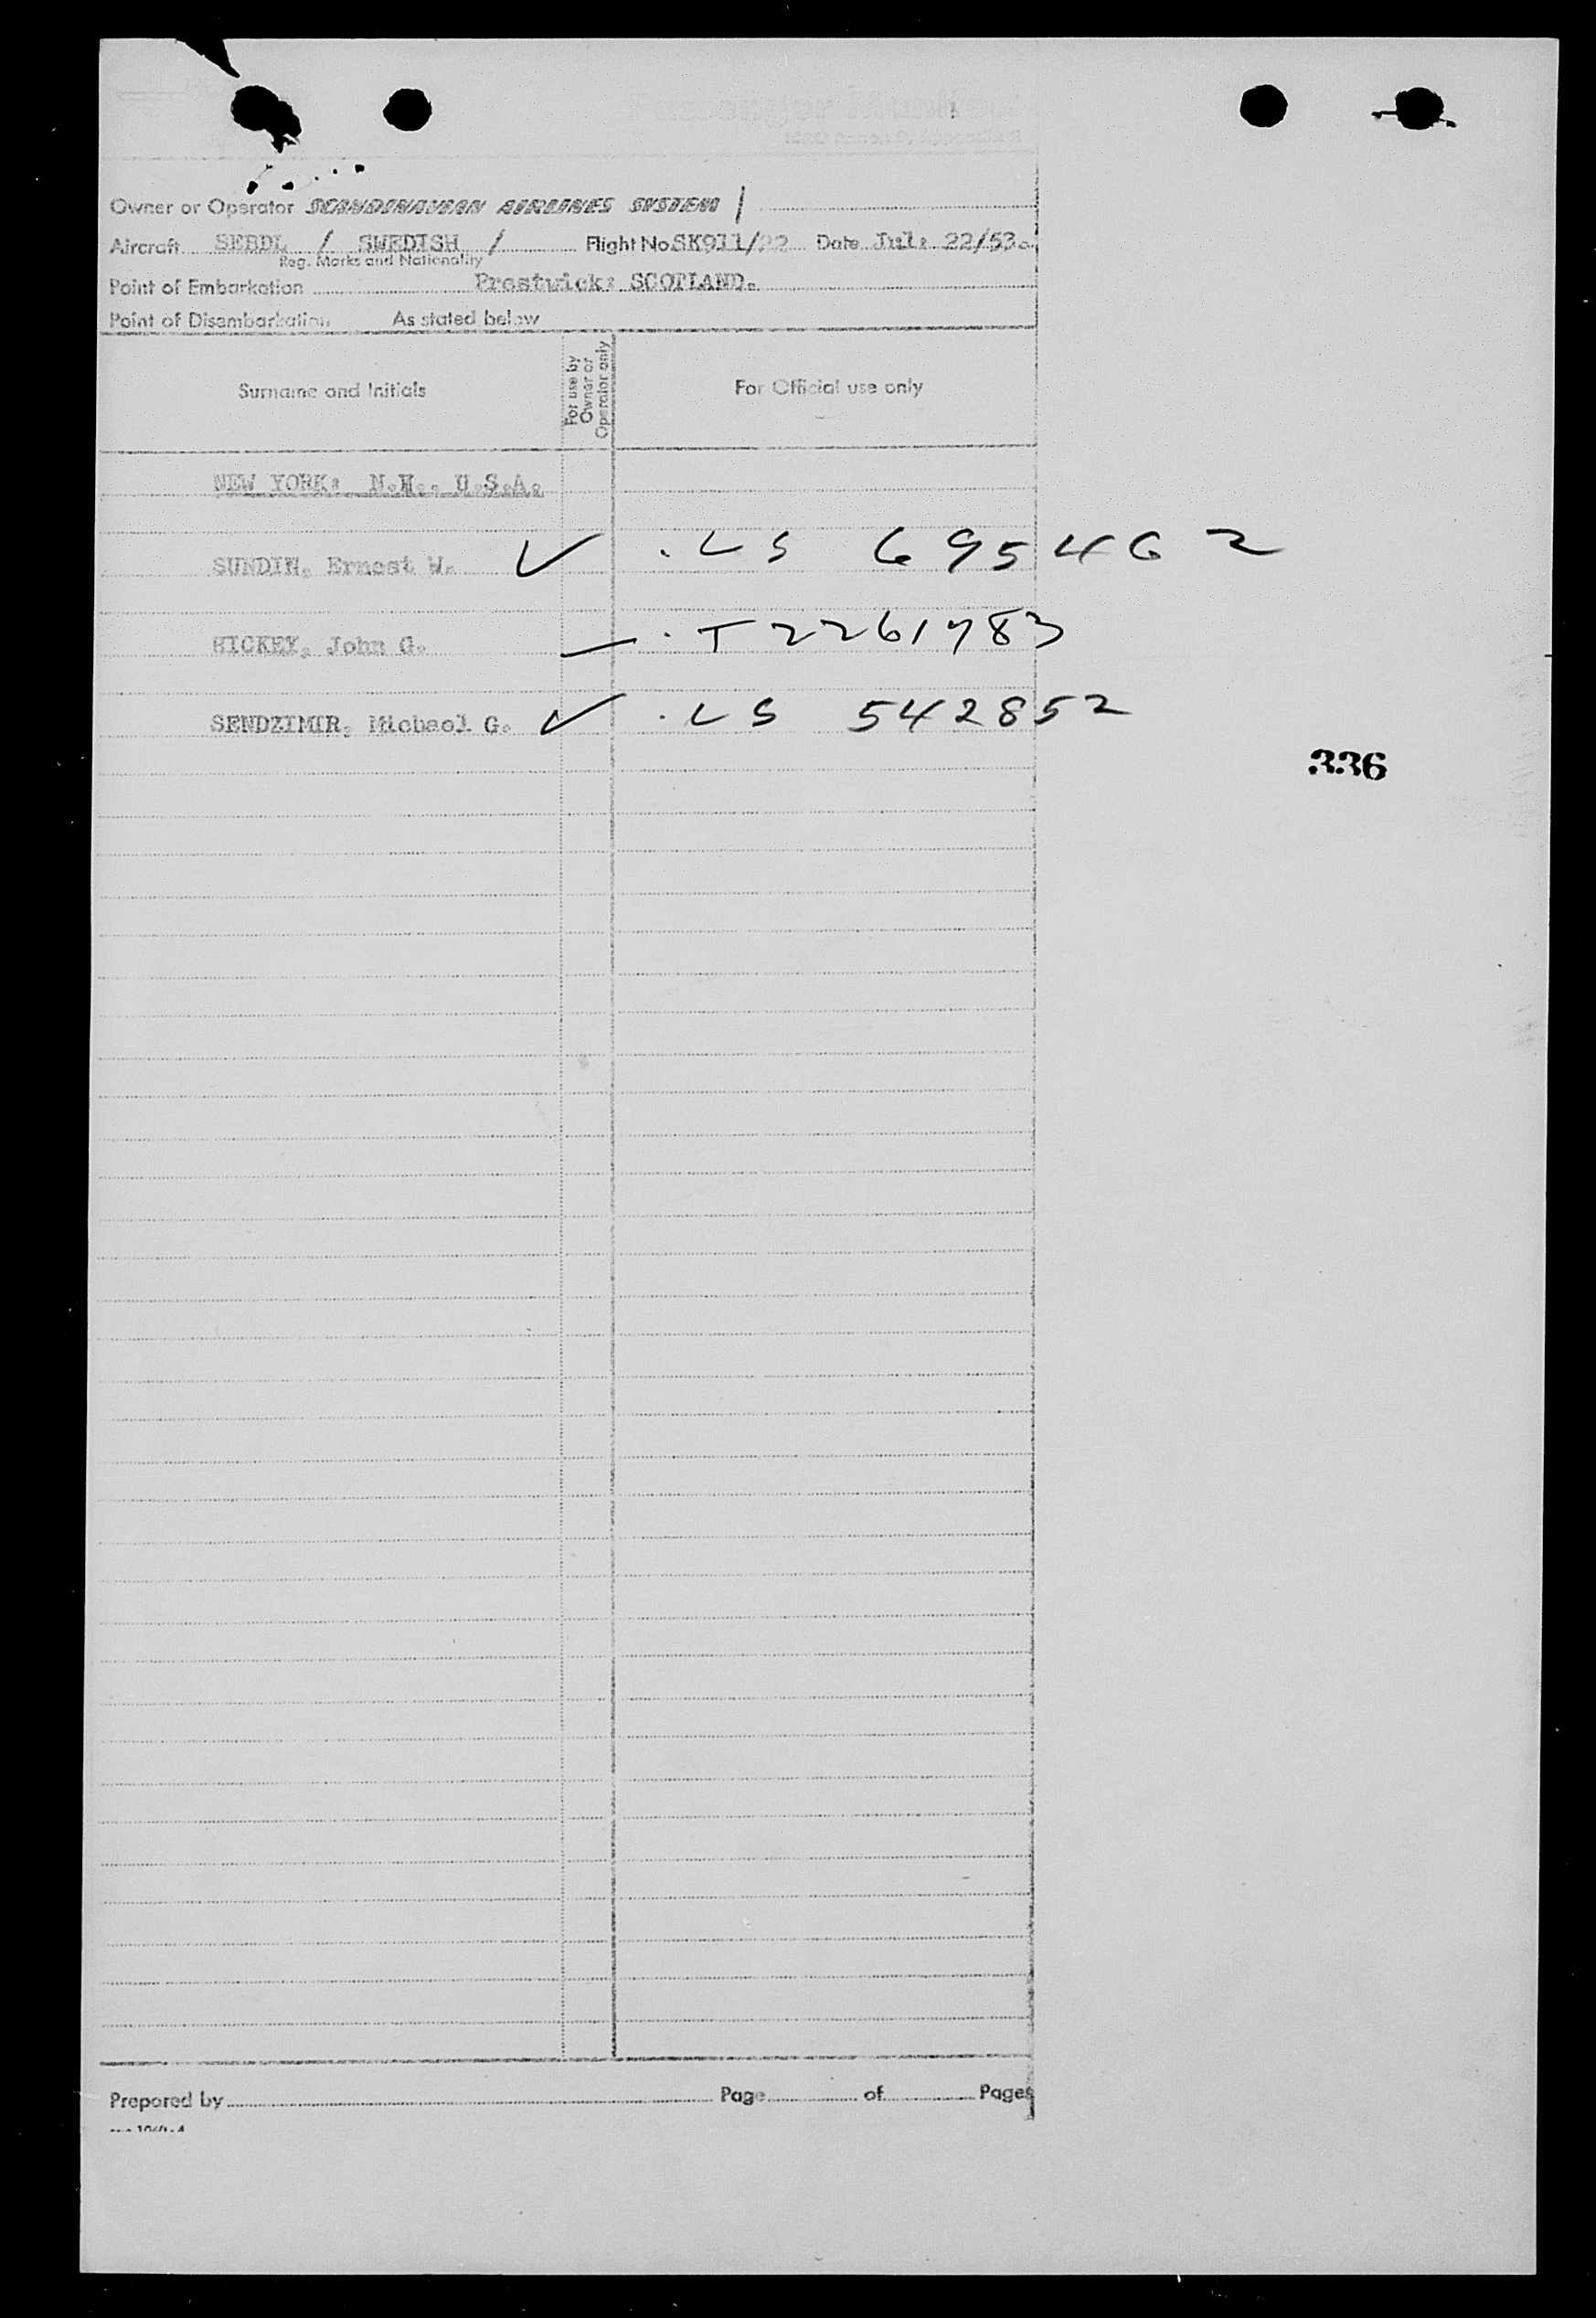 Owner or Operator SCANDINAVIAN AIRLINES SYSTEM /
Aircraft SEBDL / SWEDISH / Flight No. SK911/22 Date Jul: 22/53.
Reg. Marks and Nationality
Point of Embarkation Prestwick: SCOTLAND.
Point of Disembarkation As stated below
Surname and Initials
For use by
Owner or
Operator only
For Official use only
NEW YORK: U.S.A.
SUNDIN, Ernest W. ✓ . LS 695462
HICKEY, John G. — . T2261783
SENDZIMIR, Michael G. ✓ . LS 542852
336
Prepared by Page of Pages